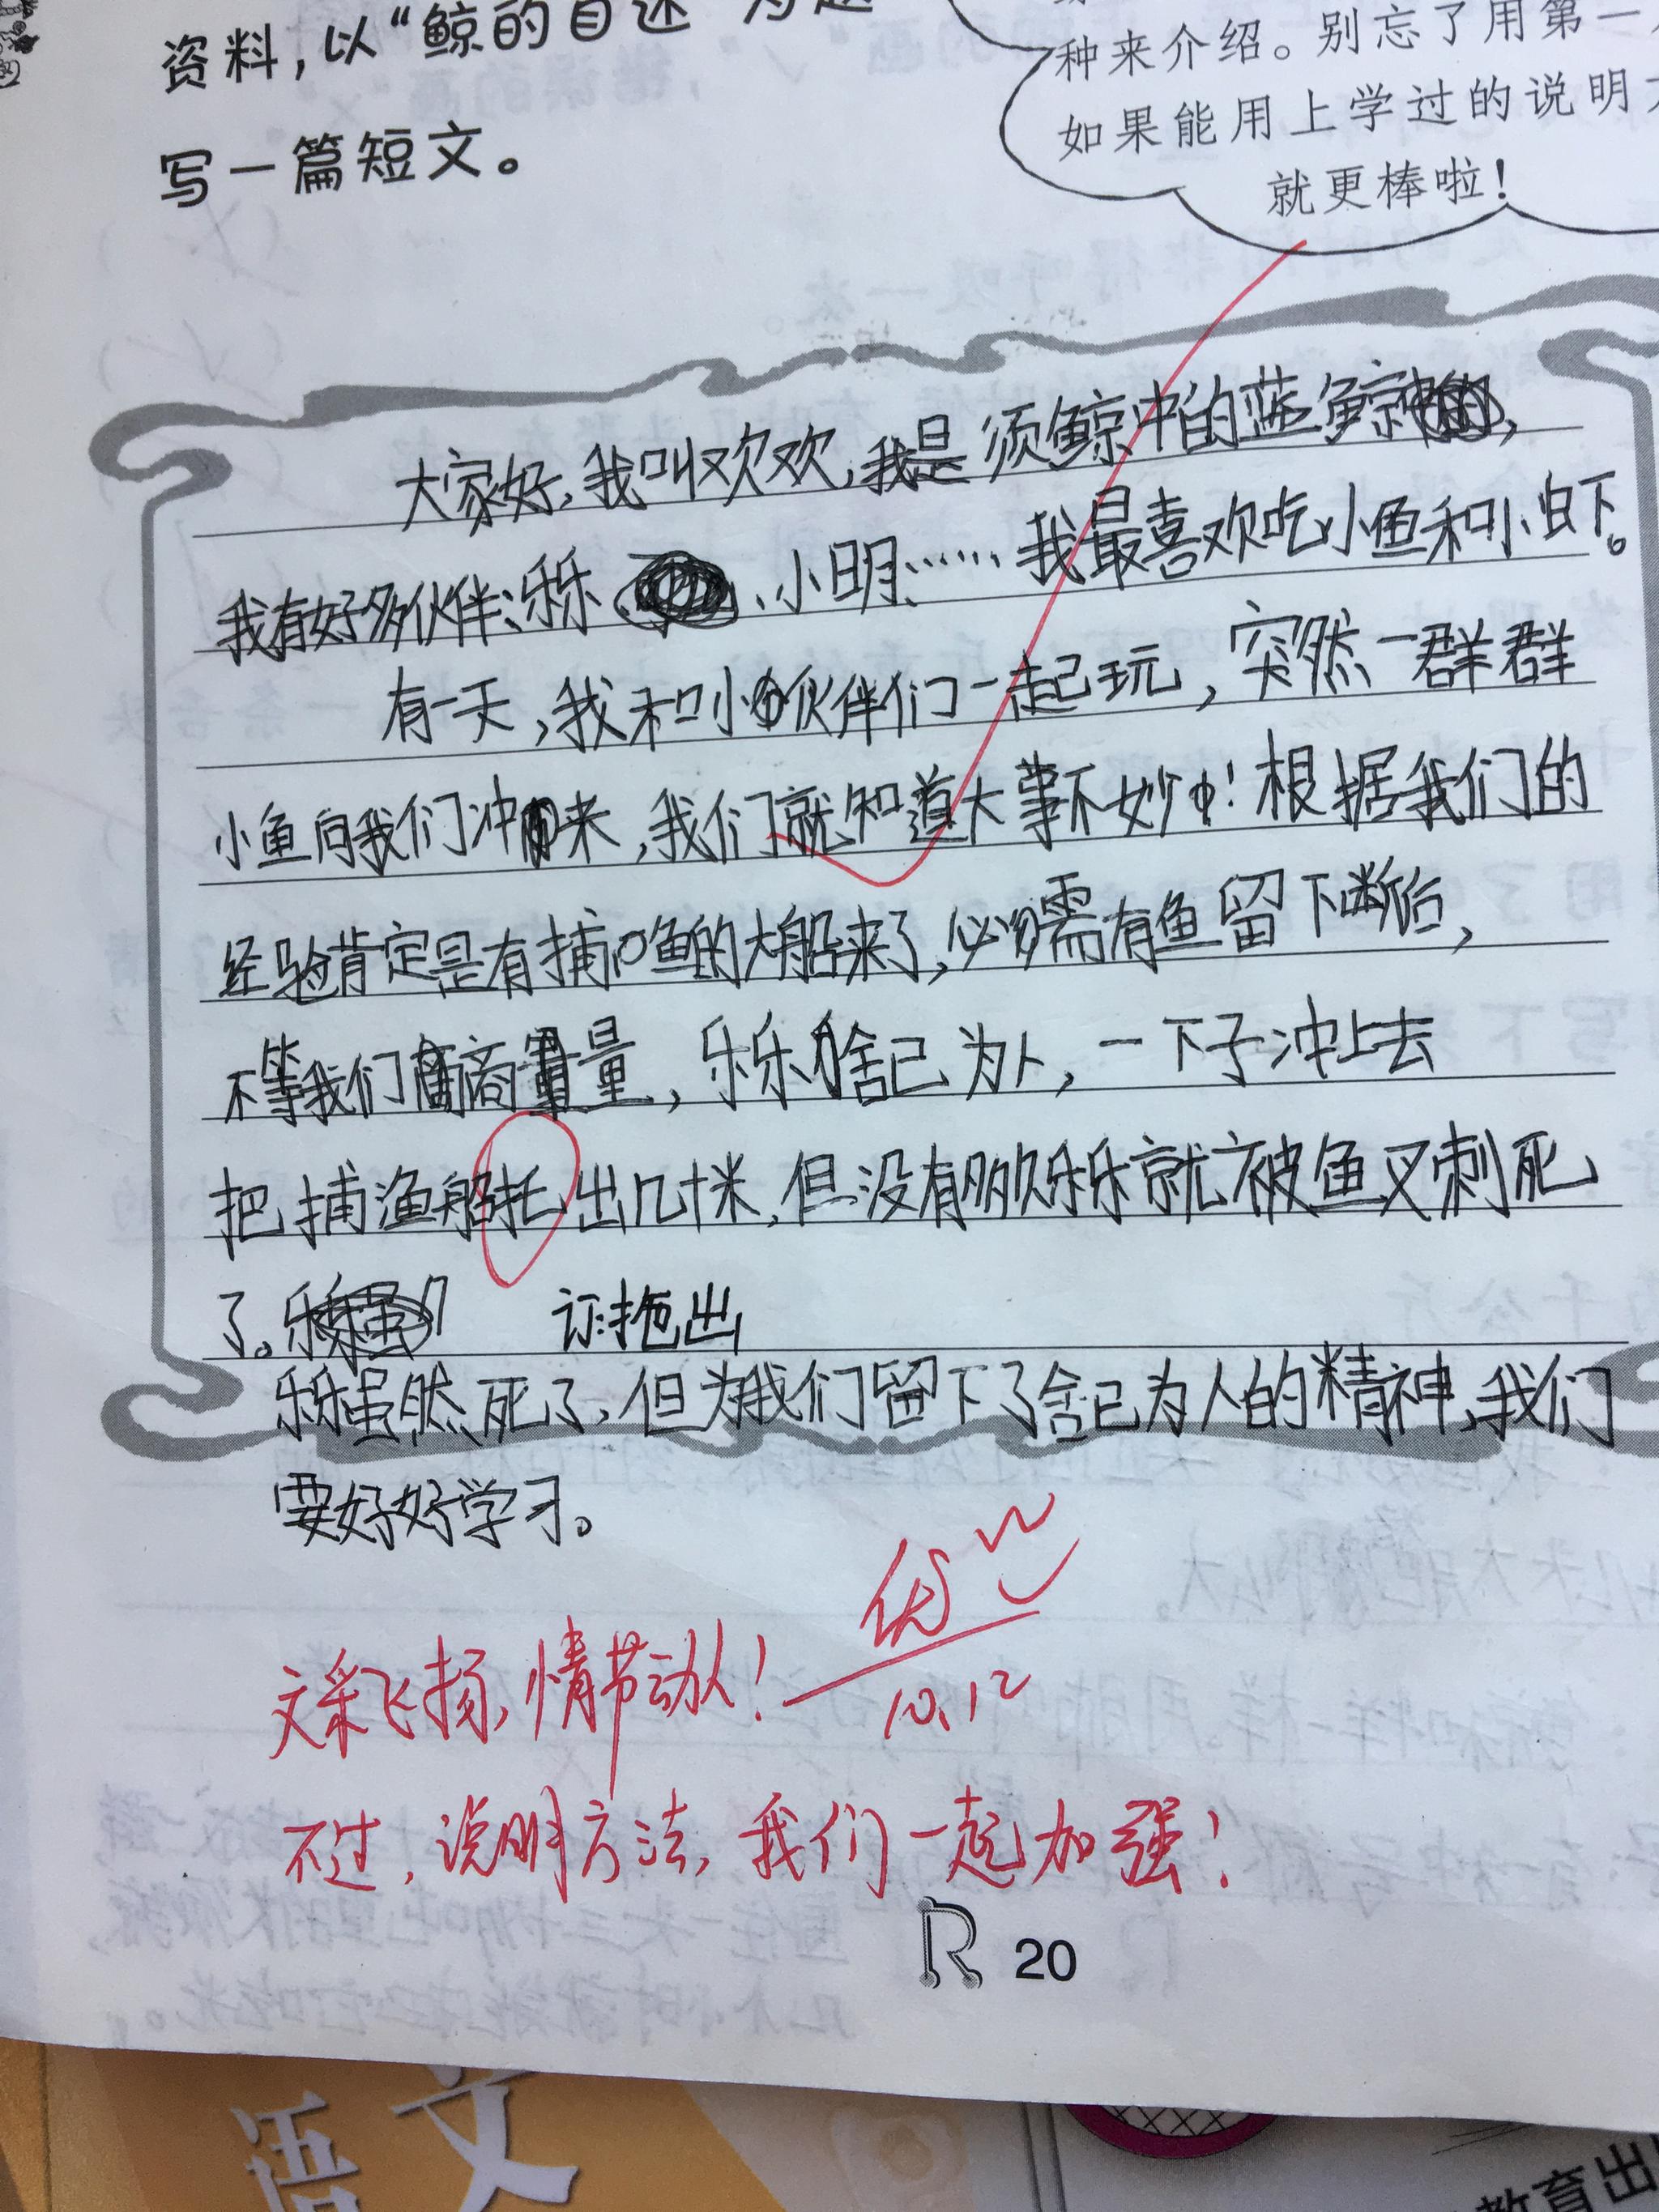 资料，以“鲸的自述”为题
写一篇短文。
种来介绍。别忘了用第一
如果能用上学过的说明
就更棒啦！
大家好，我叫欢欢，我是须鲸中的蓝鲸，
我有好多伙伴：乐乐、小明……我最喜欢吃小鱼和小虾。
有一天，我和小伙伴们一起玩，突然一群群
小鱼向我们冲来，我们就知道大事不妙！根据我们的
经验肯定是有捕鱼的大船来了，必需有鱼留下断后，
不等我们商量，乐乐舍己为人，一下子冲上去
把捕渔船拖出几十米，但没有多久乐乐就被鱼叉刺死
了。 订：拖出
乐乐虽然死了，但为我们留下了舍己为人的精神，我们
要好好学习。
优
文采飞扬，情节动人！
10.12
不过，说明方法，我们一起加强！
R 20
语文
教育出